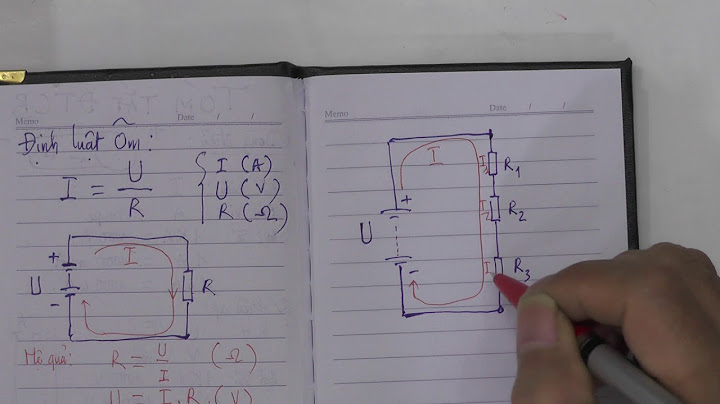 Memo Date / /
Định luật Ôm:
I = U / R
I (A)
U (V)
R (Ω)
+
I
U
R
-
Hệ quả: R = U / I (Ω)
U = I.R (V)
Memo Date / /
I
I₁ R₁
+
I₂ R₂
U
-
I R₃